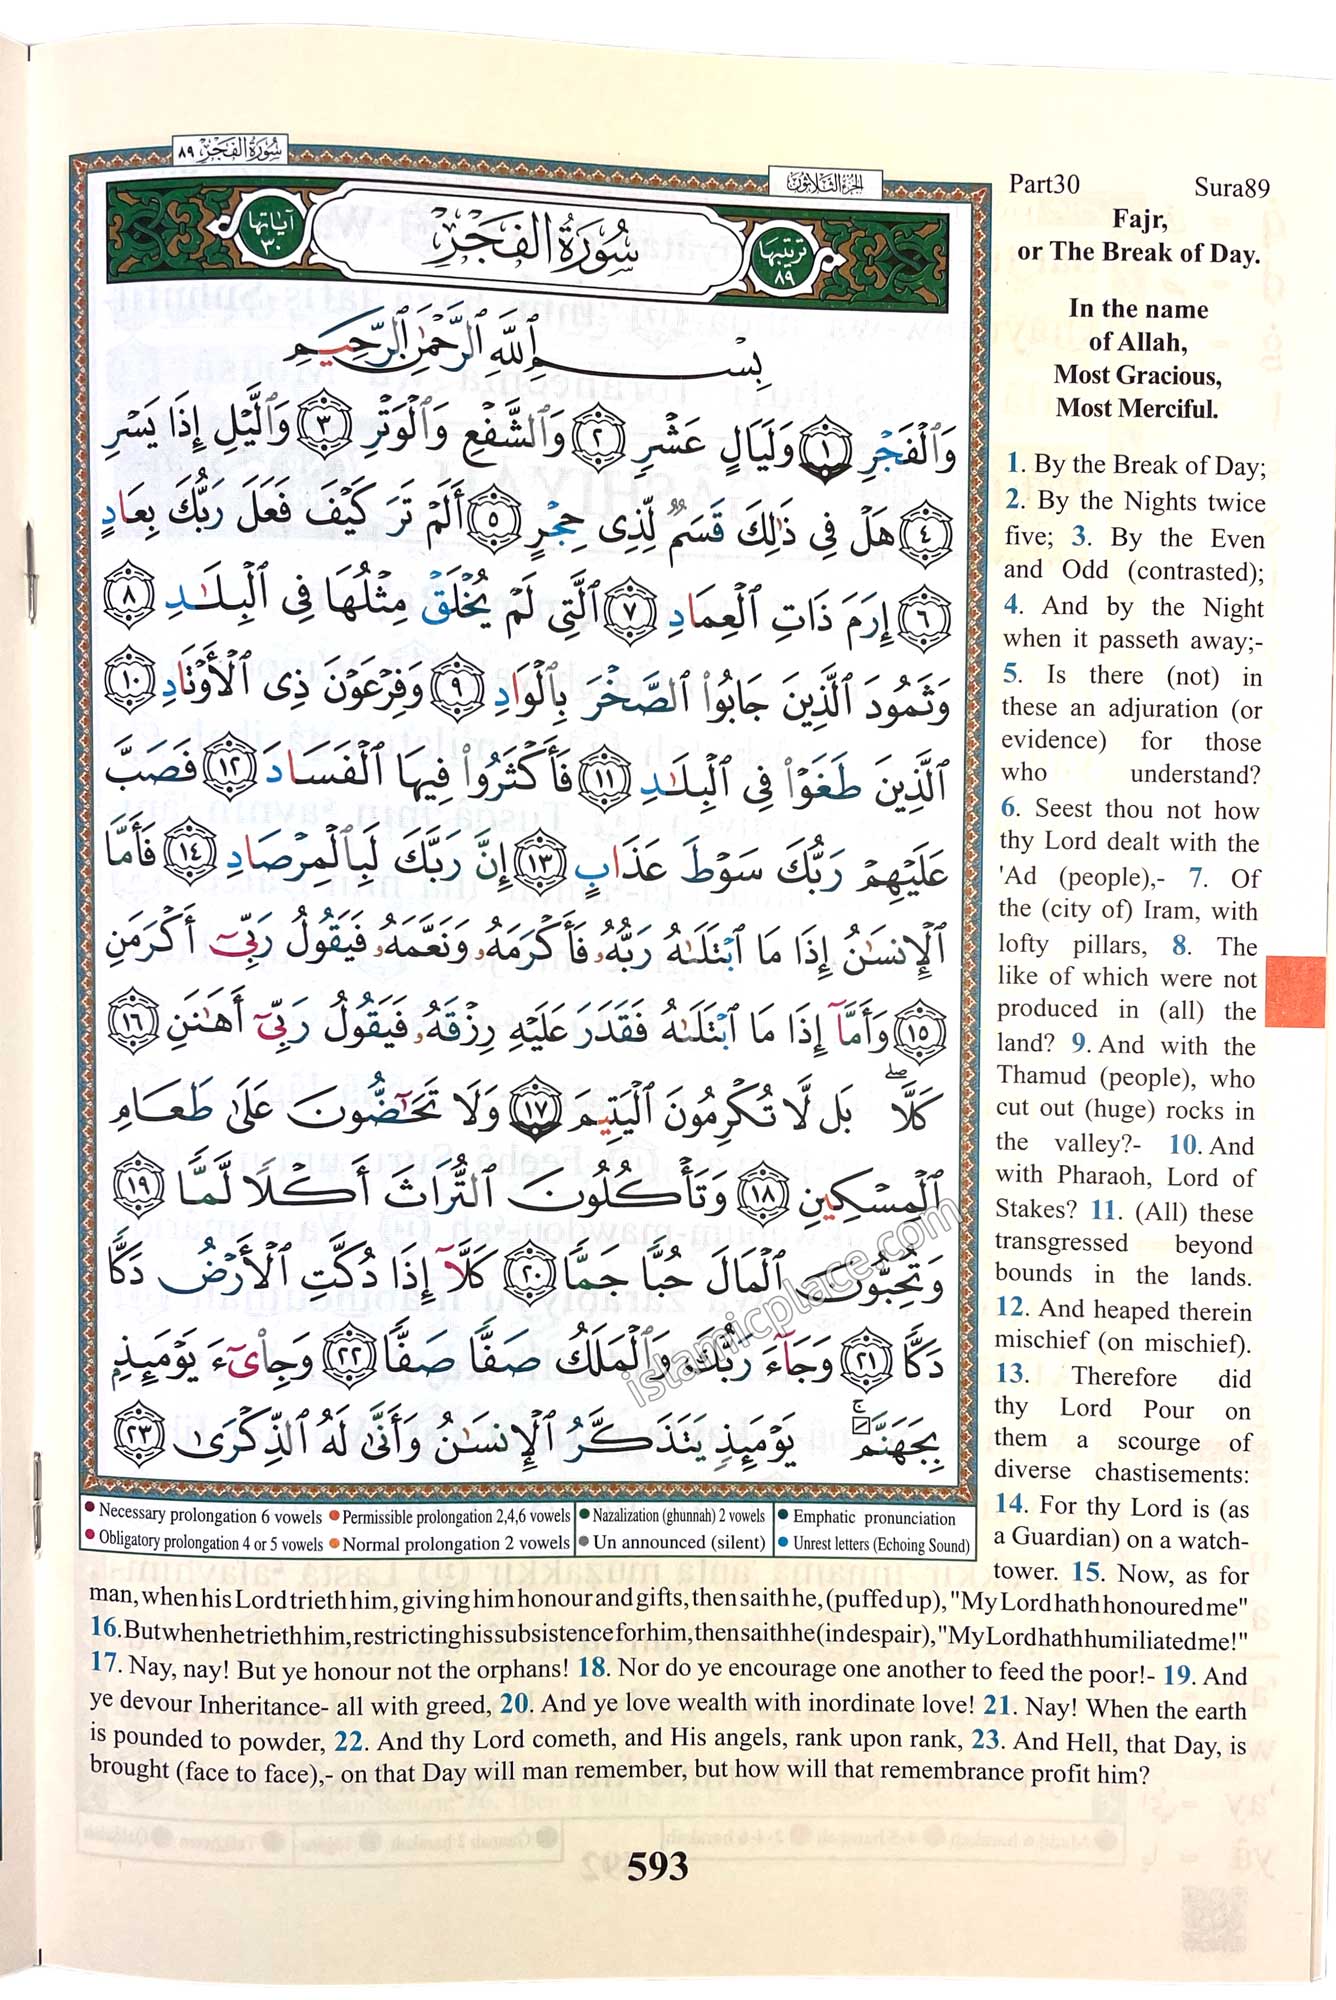 سُورَةُ الفَجْرِ ٨٩
الجُزءُ الثَّلَاثُونَ
آيَاتُهَا ٣٠
سُورَةُ الفَجْرِ
تَرتِيبُهَا ٨٩
بِسْمِ ٱللَّهِ ٱلرَّحْمَٰنِ ٱلرَّحِيمِ
وَٱلْفَجْرِ ١ وَلَيَالٍ عَشْرٍ ٢ وَٱلشَّفْعِ وَٱلْوَتْرِ ٣ وَٱلَّيْلِ إِذَا يَسْرِ
٤ هَلْ فِى ذَٰلِكَ قَسَمٌ لِّذِى حِجْرٍ ٥ أَلَمْ تَرَ كَيْفَ فَعَلَ رَبُّكَ بِعَادٍ
٦ إِرَمَ ذَاتِ ٱلْعِمَادِ ٧ ٱلَّتِى لَمْ يُخْلَقْ مِثْلُهَا فِى ٱلْبِلَٰدِ ٨
وَثَمُودَ ٱلَّذِينَ جَابُوا۟ ٱلصَّخْرَ بِٱلْوَادِ ٩ وَفِرْعَوْنَ ذِى ٱلْأَوْتَادِ ١٠
ٱلَّذِينَ طَغَوْا۟ فِى ٱلْبِلَٰدِ ١١ فَأَكْثَرُوا۟ فِيهَا ٱلْفَسَادَ ١٢ فَصَبَّ
عَلَيْهِمْ رَبُّكَ سَوْطَ عَذَابٍ ١٣ إِنَّ رَبَّكَ لَبِٱلْمِرْصَادِ ١٤ فَأَمَّا
ٱلْإِنسَٰنُ إِذَا مَا ٱبْتَلَىٰهُ رَبُّهُۥ فَأَكْرَمَهُۥ وَنَعَّمَهُۥ فَيَقُولُ رَبِّىٓ أَكْرَمَنِ
١٥ وَأَمَّآ إِذَا مَا ٱبْتَلَىٰهُ فَقَدَرَ عَلَيْهِ رِزْقَهُۥ فَيَقُولُ رَبِّىٓ أَهَٰنَنِ ١٦
كَلَّا ۖ بَل لَّا تُكْرِمُونَ ٱلْيَتِيمَ ١٧ وَلَا تَحَٰٓضُّونَ عَلَىٰ طَعَامِ
ٱلْمِسْكِينِ ١٨ وَتَأْكُلُونَ ٱلتُّرَاثَ أَكْلًا لَّمًّا ١٩
وَتُحِبُّونَ ٱلْمَالَ حُبًّا جَمًّا ٢٠ كَلَّآ إِذَا دُكَّتِ ٱلْأَرْضُ دَكًّا
دَكًّا ٢١ وَجَآءَ رَبُّكَ وَٱلْمَلَكُ صَفًّا صَفًّا ٢٢ وَجِا۟ىٓءَ يَوْمَئِذٍۭ
بِجَهَنَّمَ ۚ يَوْمَئِذٍ يَتَذَكَّرُ ٱلْإِنسَٰنُ وَأَنَّىٰ لَهُ ٱلذِّكْرَىٰ ٢٣
islamicplace.com
Necessary prolongation 6 vowels Permissible prolongation 2,4,6 vowels Nazalization (ghunnah) 2 vowels Emphatic pronunciation
Obligatory prolongation 4 or 5 vowels Normal prolongation 2 vowels Un announced (silent) Unrest letters (Echoing Sound)
Part30 Sura89
Fajr,
or The Break of Day.
In the name
of Allah,
Most Gracious,
Most Merciful.
1. By the Break of Day;
2. By the Nights twice
five; 3. By the Even
and Odd (contrasted);
4. And by the Night
when it passeth away;-
5. Is there (not) in
these an adjuration (or
evidence) for those
who understand?
6. Seest thou not how
thy Lord dealt with the
'Ad (people),- 7. Of
the (city of) Iram, with
lofty pillars, 8. The
like of which were not
produced in (all) the
land? 9. And with the
Thamud (people), who
cut out (huge) rocks in
the valley?- 10. And
with Pharaoh, Lord of
Stakes? 11. (All) these
transgressed beyond
bounds in the lands.
12. And heaped therein
mischief (on mischief).
13. Therefore did
thy Lord Pour on
them a scourge of
diverse chastisements:
14. For thy Lord is (as
a Guardian) on a watch-
tower. 15. Now, as for
man, when his Lord trieth him, giving him honour and gifts, then saith he, (puffed up), "My Lord hath honoured me"
16. But when he trieth him, restricting his subsistence for him, then saith he (in despair), "My Lord hath humiliated me!"
17. Nay, nay! But ye honour not the orphans! 18. Nor do ye encourage one another to feed the poor!- 19. And
ye devour Inheritance- all with greed, 20. And ye love wealth with inordinate love! 21. Nay! When the earth
is pounded to powder, 22. And thy Lord cometh, and His angels, rank upon rank, 23. And Hell, that Day, is
brought (face to face),- on that Day will man remember, but how will that remembrance profit him?
593